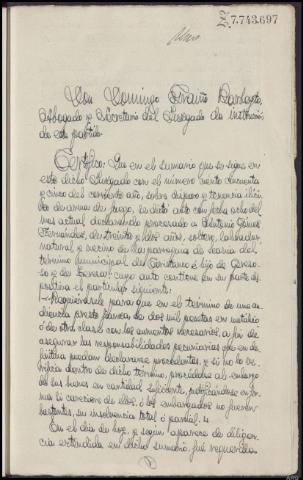 7.743.697
Don Domingo
Abogado y Secretario del Juzgado de Instrucción
de este partido.
Certifico: Que en el sumario que se sigue en
este dicho Juzgado con el número ciento cincuenta
y cinco del corriente año, sobre disparo y tenencia ilíci-
ta de arma de fuego, se dictó auto con fecha ocho del
mes actual declarando procesado a Antonio Gómez
Fernández, de treinta y dos años, soltero, labrador,
natural y vecino de la parroquia de
término municipal de é hijo de
y de cuyo auto contiene en su parte dis-
positiva el particular siguiente:
Requiérasele para que en el término de una au-
diencia preste fianza de dos mil pesetas en metálico
ó de otra clase con los aumentos necesarios, a fin de
asegurar las responsabilidades pecuniarias que en de-
finitiva puedan declararse procedentes, y si no lo ve-
rifica dentro de dicho término, procédase al embargo
de sus bienes en cantidad suficiente, justificándose en for-
ma si careciere de ellos, ó los embargados no fueren
bastantes, su insolvencia total ó parcial.
En el día de hoy, y según aparece de diligen-
cia extendida en dicho sumario, fué requerido